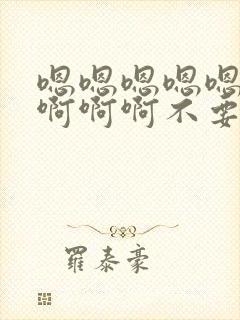 嗯嗯嗯嗯嗯
啊啊啊不要
羅泰豪